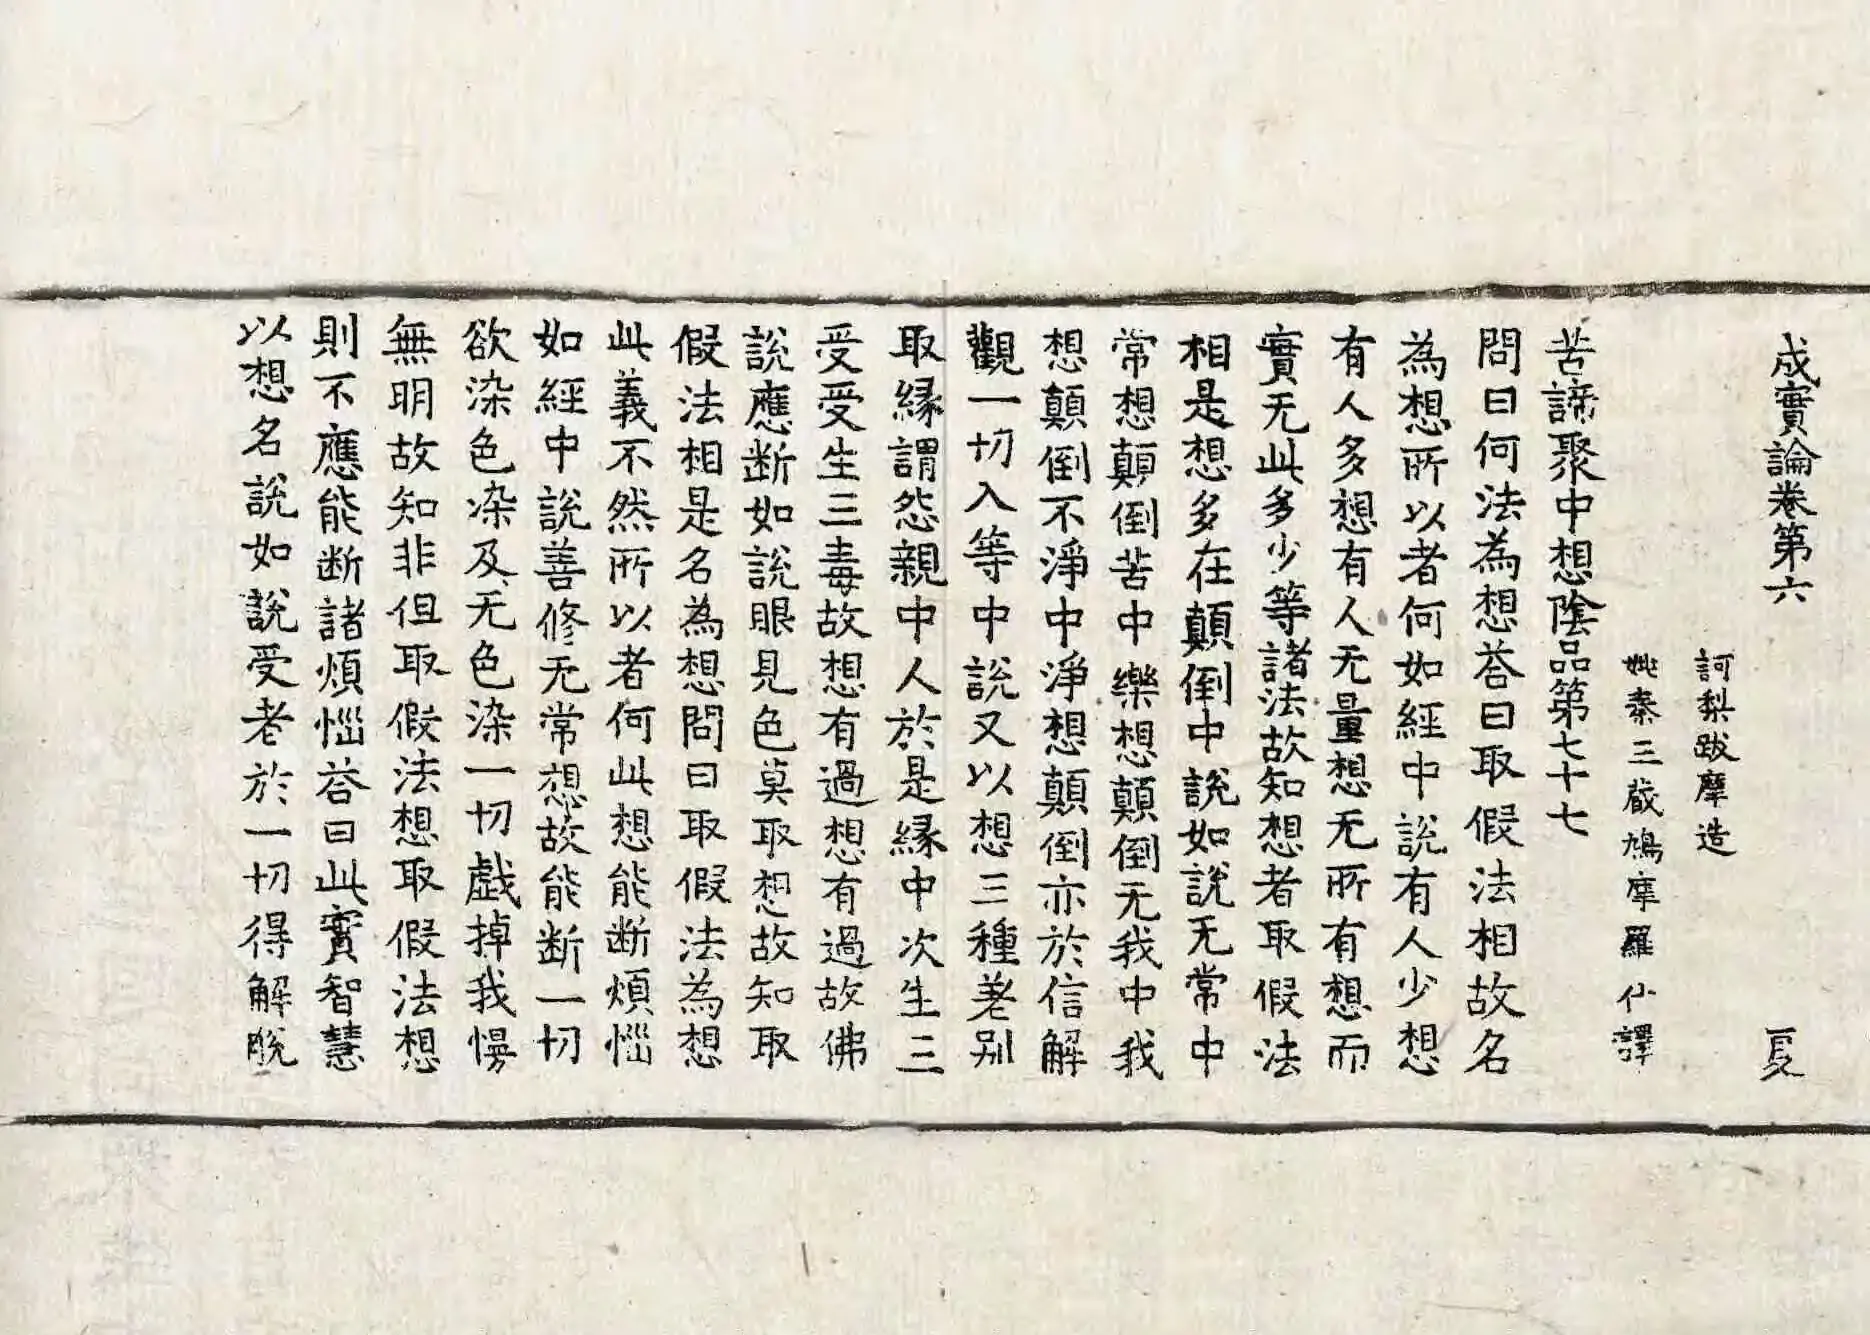 成實論卷第六 夏
訶梨跋摩造
姚秦三藏鳩摩羅什譯
苦諦聚中想陰品第七十七
問曰何法為想荅曰取假法相故名
為想所以者何如經中說有人少想
有人多想有人无量想无所有想而
實无此多少等諸法故知想者取假法
相是想多在顛倒中說如說无常中
常想顛倒苦中樂想顛倒无我中我
想顛倒不淨中淨想顛倒亦於信解
觀一切入等中說又以想三種差別
取緣謂怨親中人於是緣中次生三
受受生三毒故想有過想有過故佛
說應断如說眼見色莫取想故知取
假法相是名為想問曰取假法為想
此義不然所以者何此想能断煩惱
如經中說善修无常想故能断一切
欲染色染及无色染一切戲掉我慢
無明故知非但取假法想取假法想
則不應能断諸煩惱荅曰此實智慧
以想名說如說受者於一切得解脫